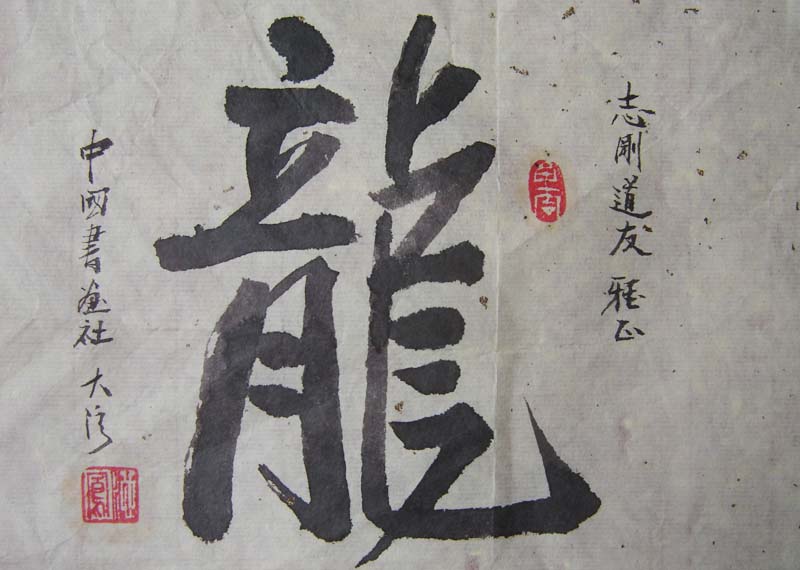 志剛道友 雅正
龍
中國書畫社 大